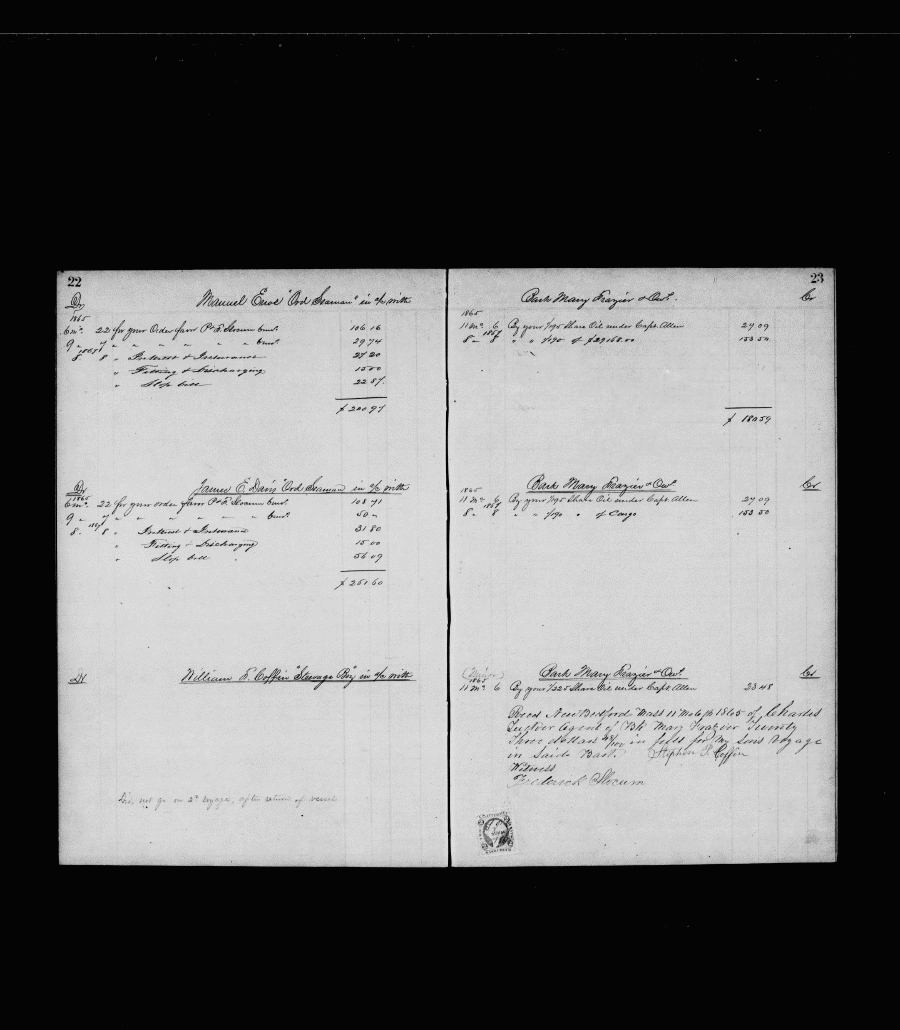 22
Dr Manuel Enos "Ord Seaman" in a/c with
1865
6 mo. 22 for your Order favr P & F. Slocum Curr.
106 16
9 " 7 " " " " " " " Curr.
29 74
1867
8 " 8 " Interest & Insurance
27 20
" Fitting & Discharging
15 00
" Slop bill
22 87
$ 200 97
Dr James E. Davis "Ord Seaman" in a/c with
1865
6 mo. 22 for your order favr P & F. Slocum Curr.
108 71
9 " 7 " " " " " Curr.
50 "
1867
8 " 8 " Interest & Insurance
31 80
" Fitting & Discharging
15 00
" Slop bill
56 09
$ 260 60
Dr William F. Coffin "Steerage Boy" in a/c with
Did not go on 2d voyage, after return of vessel
23
Bark Mary Frazier & Ow. Cr
1865
11 mo. 6 By your 1/190 Share Oil under Capt. Allen
27 09
1867
8 " 8 " " 1/190 of $29165.00
153 50
$ 180 59
Bark Mary Frazier & Ow. Cr
1865
11 mo. 6 By your 1/190 Share Oil under Capt. Allen
27 09
1867
8 " 8 " " 1/190 " of Cargo
153 50
(Minor) Bark Mary Frazier & Ow. Cr
1865
11 mo. 6 By your 1/225 Share Oil under Capt. Allen
23 48
Recd New Bedford Mass 11 Mo 6th 1865 of Charles
Tucker Agent of Bk Mary Frazier Twenty
Three dollars 48/100 in full for my sons Voyage
in Said Bark. Stephen Coffin
Witness
Frederick Slocum